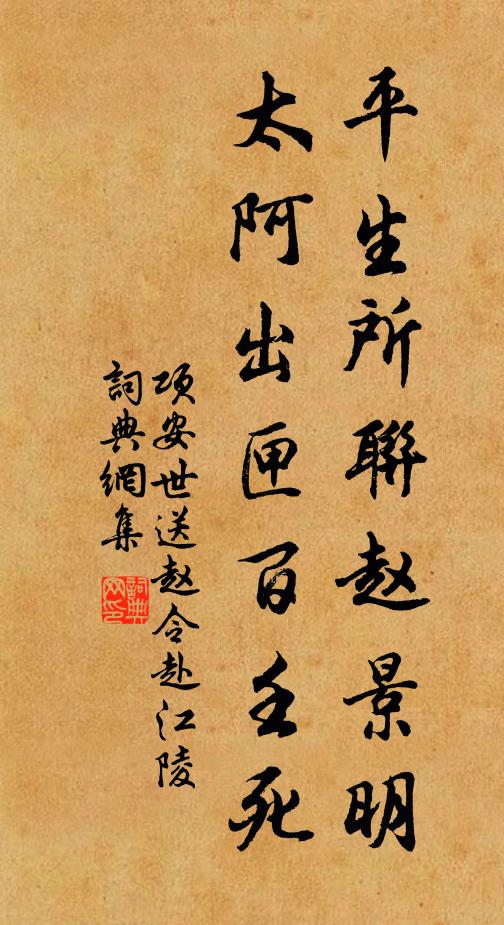 平生所聯赵景明
太阿出匣百壬死
项安世送赵令赴江陵
詞典網集
詞典網印